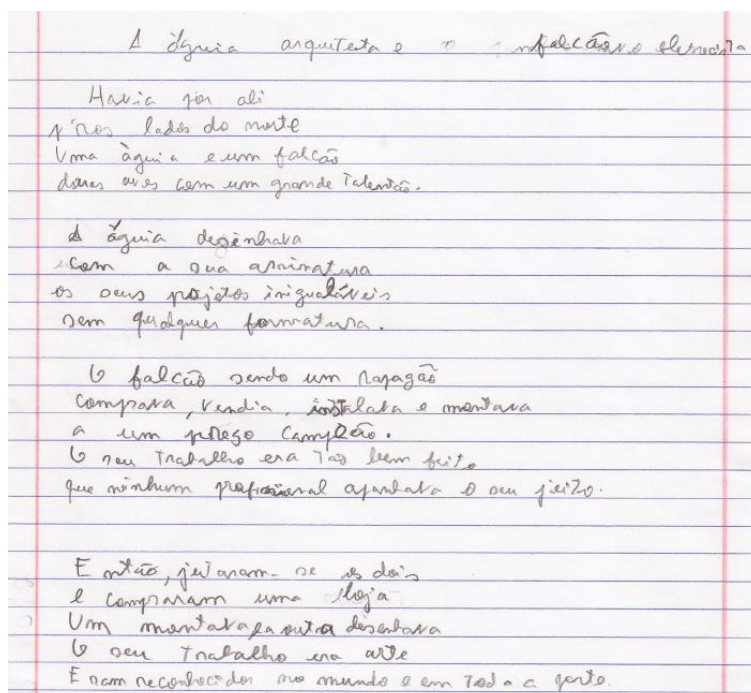 A águia arquiteta e o falcão eletricista
Havia por ali
p'ros lados do norte
Uma àguia e um falcão
duas aves com um grande talentão.
A águia desenhava
com a sua assinatura
os seus projetos inigualáveis
sem qualquer formatura.
O falcão sendo um rapagão
comprava, vendia, instalava e montava
a um preço campeão.
O seu trabalho era tão bem feito
que ninhum profissional apanhava o seu jeito.
Então, juntaram-se os dois
e compraram uma loja
Um montava, a outra desenhava
O seu trabalho era arte
Eram reconhecidos no mundo e em toda a parte.